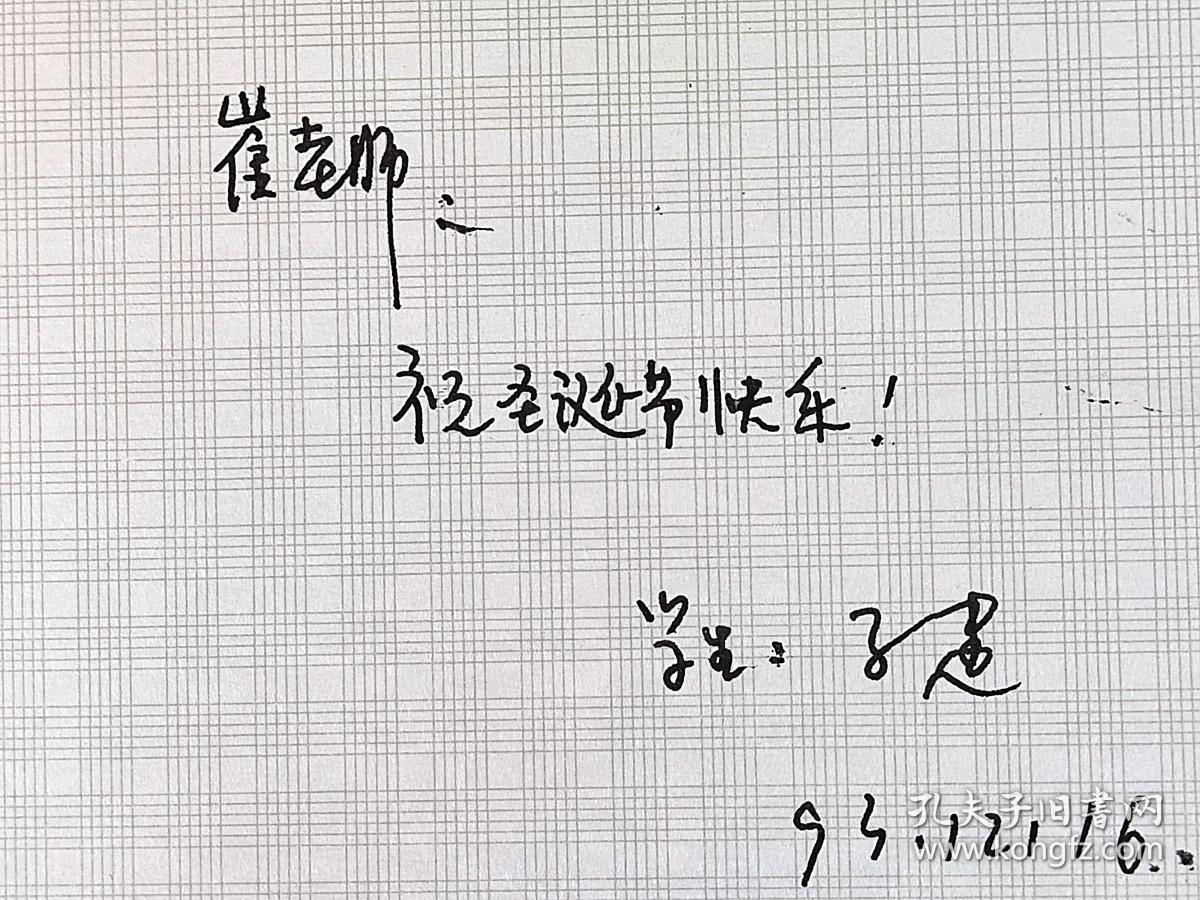 崔老师：
祝圣诞节快乐！
学生：子建
93.12.16.
孔夫子旧書网
www.kongfz.com